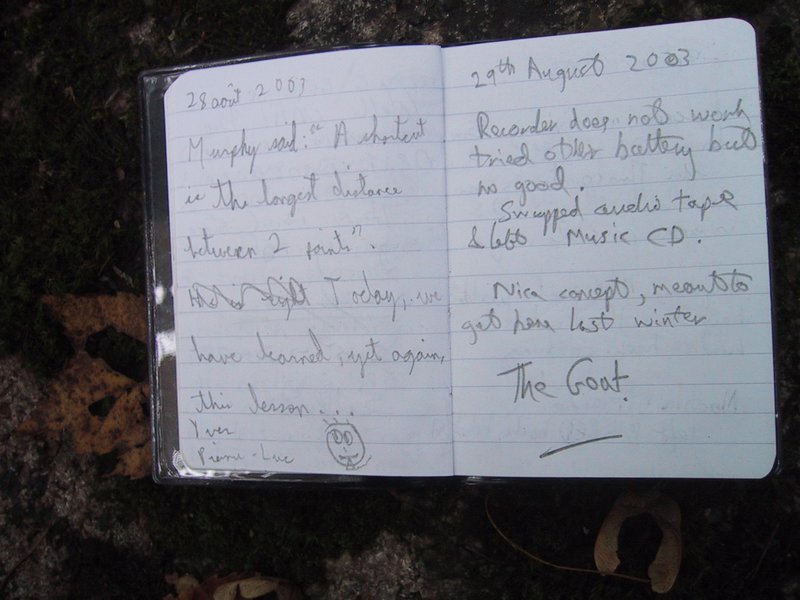 28 août 2003
Murphy said: "A shortcut
is the longest distance
between 2 points".
Today, we
have learned, yet again,
this lesson...
Yves
Pierre-Luc
29th August 2003
Recorder does not work
tried other battery but
no good.
Swapped audio tape
& left Music CD.
Nice concept, meant to
get here last winter
The Goat.